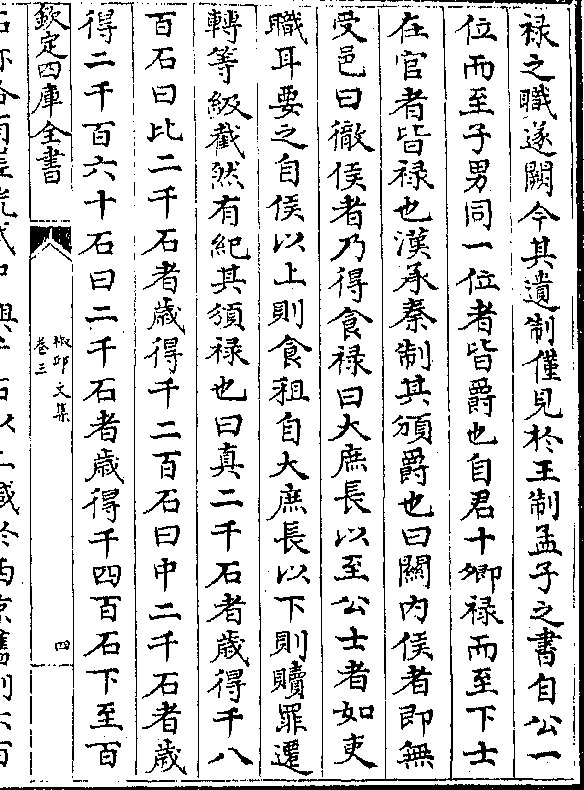 祿之職遂闕今其遺制僅見於王制孟子之書自公一
位而至子男同一位者皆爵也自君十卿祿而至下士
在官者皆祿也漢承秦制其頒爵也曰關内侯者即無
受邑曰徹侯者乃得食祿曰大庶長以至公士者如吏
職耳要之自侯以上則食租自大庶長以下則贖罪遷
轉等級截然有紀其頒祿也曰真二千石者歲得千八
百石曰比二千石者歲得千二百石曰中二千石者歲
得二千百六十石曰二千石者歲得千四百石下至百
欽定四庫全書
椒邱文集
卷三
四